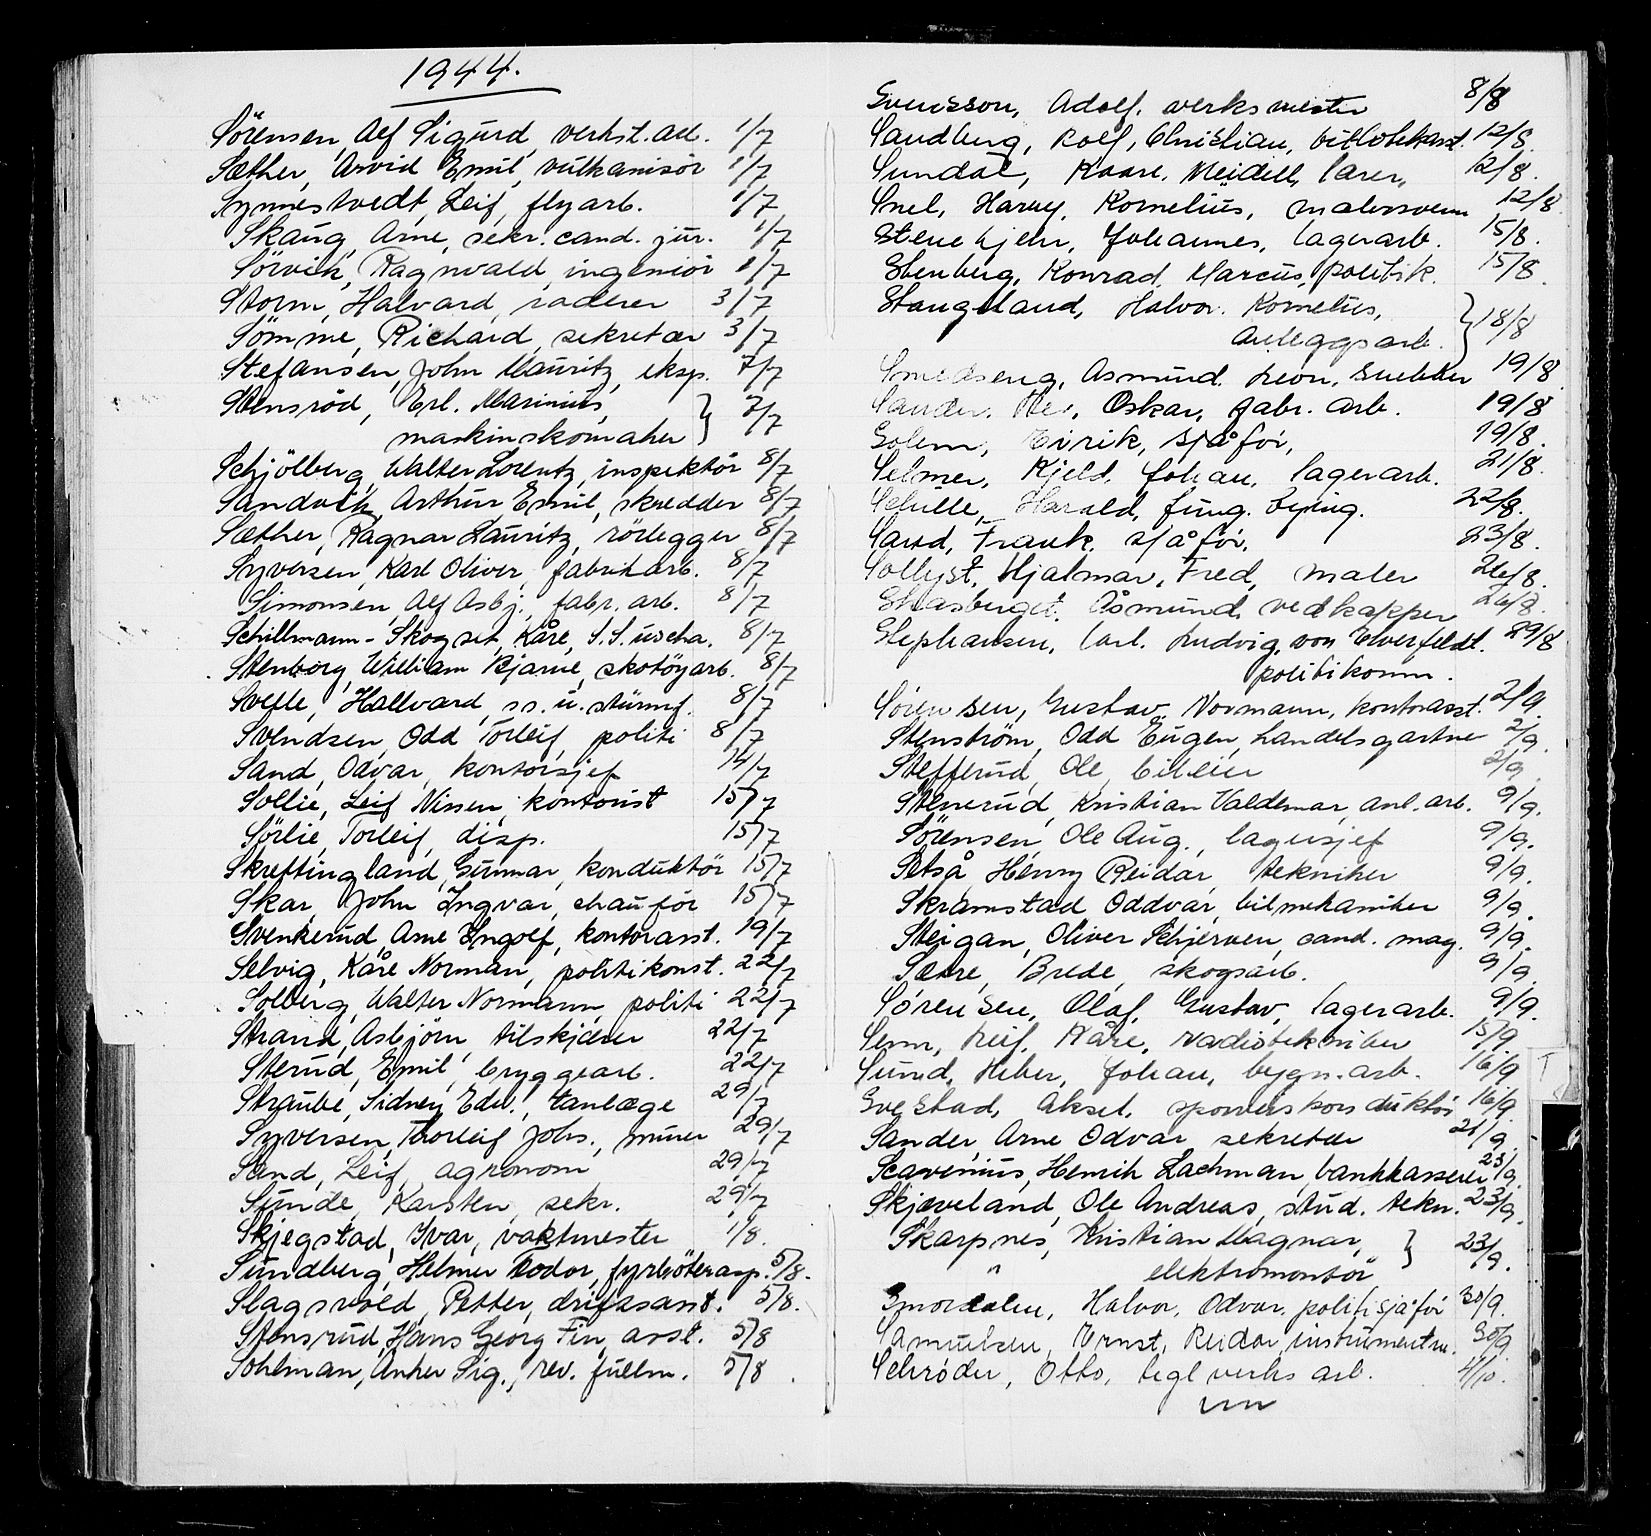 1944.
Sörensen, Alf Sigurd, verkst.arb. 1/7
Sæther, Arvid Emil, vulkanisör 1/7
Synnestvedt, Leif, flyarb. 1/7
Skaug, Arne, sekr. cand. jur. 1/7
Sörvik, Ragnvald, ingeniör 1/7
Storm, Halvard, raderer 3/7
Sömme, Richard, sekretær 3/7
Stefansen, John Mauritz, eksp. 7/7
Stensröd, Erl. Marinius, 7/7
maskinskomaker
Schjölberg, Walter Lorentz, inspektör 8/7
Sandvik, Arthur Emil, skredder 8/7
Sæther, Ragnar Lauritz, rörlegger 8/7
Syversen, Karl Oliver, fabrikarb. 8/7
Simonsen, Alf Asbj., fabr. arb. 8/7
Schillmann-Skogset, Kåre, S.S. uscha. 8/7
Stenborg, William Bjarne, skotöyarb. 8/7
Svelle, Hallvard, ss. u. stürmf. 8/7
Svendsen, Odd Torleif, politi 8/7
Sand, Odvar, kontorsjef 14/7
Sollie, Leif Nissen, kontorist 15/7
Sörlie, Torleif, disp. 15/7
Skreftingland, Gunnar, konduktör 15/7
Skar, John Ingvar, chauför 15/7
Svenkerud, Arne Ingolf, kontorasst. 19/7
Selvig, Kåre Norman, politikonst. 22/7
Solberg, Walter Normann, politi 22/7
Strand, Asbjörn, tilskjærer 22/7
Sterud, Emil, bryggearb. 22/7
Straube, Sidney Edv., tanlæge 29/7
Syversen, Thorleif Johs., murer 29/7
Sand, Leif, agronom 29/7
Sunde, Karsten, sekr. 29/7
Skjegstad, Ivar, vaktmester 1/8.
Sundberg, Helmer Todor, fyrböterasp. 5/8.
Slagsvold, Petter, driftsasst. 5/8.
Stensrud, Hans Georg Fin, asst. 5/8
Sohlman, Anker Sig., rev. fullm. 5/8.
Svensson, Adolf. verksmester 8/8
Sandberg, Rolf, Christian, bibliotekasst. 12/8.
Sundal, Kaare. Meidell, lærer, 12/8.
Snel, Harry, Kornelius, malersvenn 12/8.
Stenekjehr, Johannes, lagerarb. 15/8.
Stenberg, Konrad, Marcus, politik. 15/8
Stangeland, Halvor. Kornelius, 18/8
anleggsarb.
Smedseng, Asmund. Leon, snekker 19/8
Sander, Oskar, fabr. arb. 19/8
Solem, Eirik, sjåför, 19/8.
Selmer, Kjeld. Johan, lagerarb. 21/8.
Schulle, Harald, fung. 22/8.
Sand, Frank. sjåför. 23/8.
Sollyst, Hjalmar, Fred, maler 26/8.
Skasberget. Åsmund, vedkapper 26/8.
Stephansen, Carl. Ludvig, von Elverfeldt. 29/8
politikomm.
Sörensen, Gustav Normann, kontorasst. 2/9.
Stenström, Odd Eugen, handelsgartner 2/9.
Stefferud, Ole, bileier 2/9.
Stenerud, Kristian Valdemar, anl. arb. 9/9.
Sörensen, Ole Aug., lagersjef 9/9.
Setså, Henny Reidar, tekniker 9/9.
Skramstad, Oddvar, bilmekaniker 9/9.
Steigan, Oliver Schjerven, cand. mag. 9/9.
Sætre, Brede, skogsarb. 9/9.
Sørensen, Olaf, Gustav, lagerarb. 9/9.
Senn, Leif. Kåre, radiotekniker 15/9
Sund, Hilber, Johan, bygn. arb. 16/9
Svestad, Aksel, sporveiskonduktör 16/9
Sander, Arne Odvar, sekretær 21/9.
Scavenius, Henrik Lachman, bankkasserer 23/9.
Skjæveland, Ole Andreas, stud. tekn. 23/9.
Skarpnes, Kristian Magnar, 23/9.
" elektromontör
Smordalen, Halvor, Odvar, politisjåför 30/9.
Samuelsen, Ernst, Reidar, instrumentm. 30/9.
Schrøder, Otto, teglverks arb. 4/10.